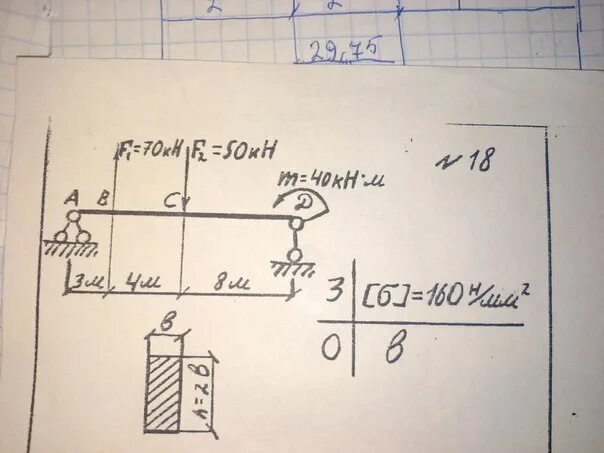 2
2
29,75
F₁=70кН
F₂=50кН
N 18
m=40кН·м
A
B
C
D
3м
4м
8м
З
[б]=160 н/мм²
О
в
в
h=2в